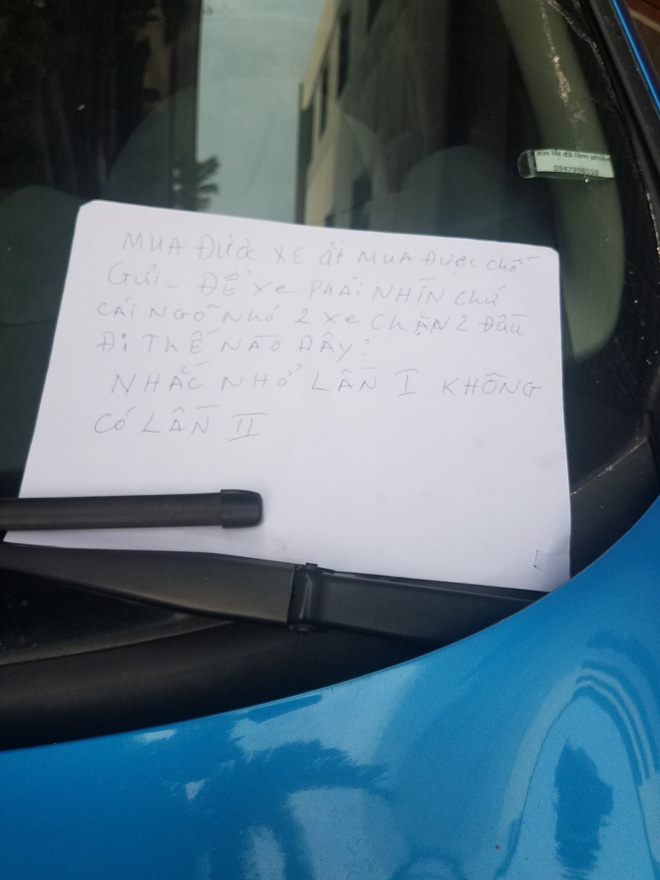 xin lỗi đã làm phiền
0942998558
MUA ĐƯỢC XE ắt MUA ĐƯỢC chỗ
Gửi - ĐỂ Xe PHẢI NHÌN chứ
CÁI NGÕ NHỎ 2 Xe CHẶN 2 Đầu
Đi THẾ NÀO ĐÂY?
NHẮC NHỞ LẦN I KHÔNG
CÓ LẦN II